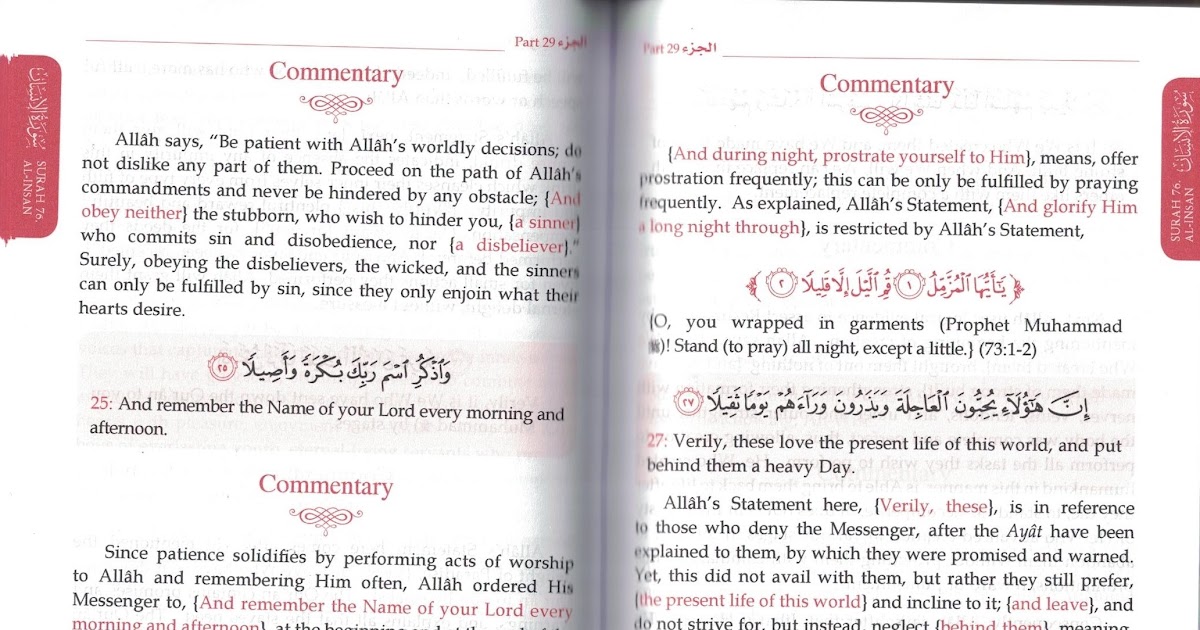 Part 29 الجزء
Commentary
Allâh says, “Be patient with Allâh’s worldly decisions; do
not dislike any part of them. Proceed on the path of Allâh’s
commandments and never be hindered by any obstacle; {And
obey neither} the stubborn, who wish to hinder you, {a sinner}
who commits sin and disobedience, nor {a disbeliever}.”
Surely, obeying the disbelievers, the wicked, and the sinners
can only be fulfilled by sin, since they only enjoin what their
hearts desire.
وَٱذْكُرِ ٱسْمَ رَبِّكَ بُكْرَةً وَأَصِيلًا ٢٥
25: And remember the Name of your Lord every morning and
afternoon.
Commentary
Since patience solidifies by performing acts of worship
to Allâh and remembering Him often, Allâh ordered His
Messenger to, {And remember the Name of your Lord every
morning and afternoon}, at the beginning and at the end of the
سُورَةُ الإِنسَانِ SURAH 76.
AL-INSAN
Part 29 الجزء
Commentary
{And during night, prostrate yourself to Him}, means, offer
prostration frequently; this can be only be fulfilled by praying
frequently. As explained, Allâh’s Statement, {And glorify Him
a long night through}, is restricted by Allâh’s Statement,
﴿يَٰٓأَيُّهَا ٱلْمُزَّمِّلُ ١ قُمِ ٱلَّيْلَ إِلَّا قَلِيلًا ٢﴾
{O, you wrapped in garments (Prophet Muhammad
ﷺ)! Stand (to pray) all night, except a little.} (73:1-2)
إِنَّ هَٰٓؤُلَآءِ يُحِبُّونَ ٱلْعَاجِلَةَ وَيَذَرُونَ وَرَآءَهُمْ يَوْمًا ثَقِيلًا ٢٧
27: Verily, these love the present life of this world, and put
behind them a heavy Day.
Allâh’s Statement here, {Verily, these}, is in reference
to those who deny the Messenger, after the Ayât have been
explained to them, by which they were promised and warned.
Yet, this did not avail with them, but rather they still prefer,
{the present life of this world} and incline to it; {and leave}, and
do not strive for, but instead, neglect {behind them}, meaning,
سُورَةُ الإِنسَانِ SURAH 76.
AL-INSAN